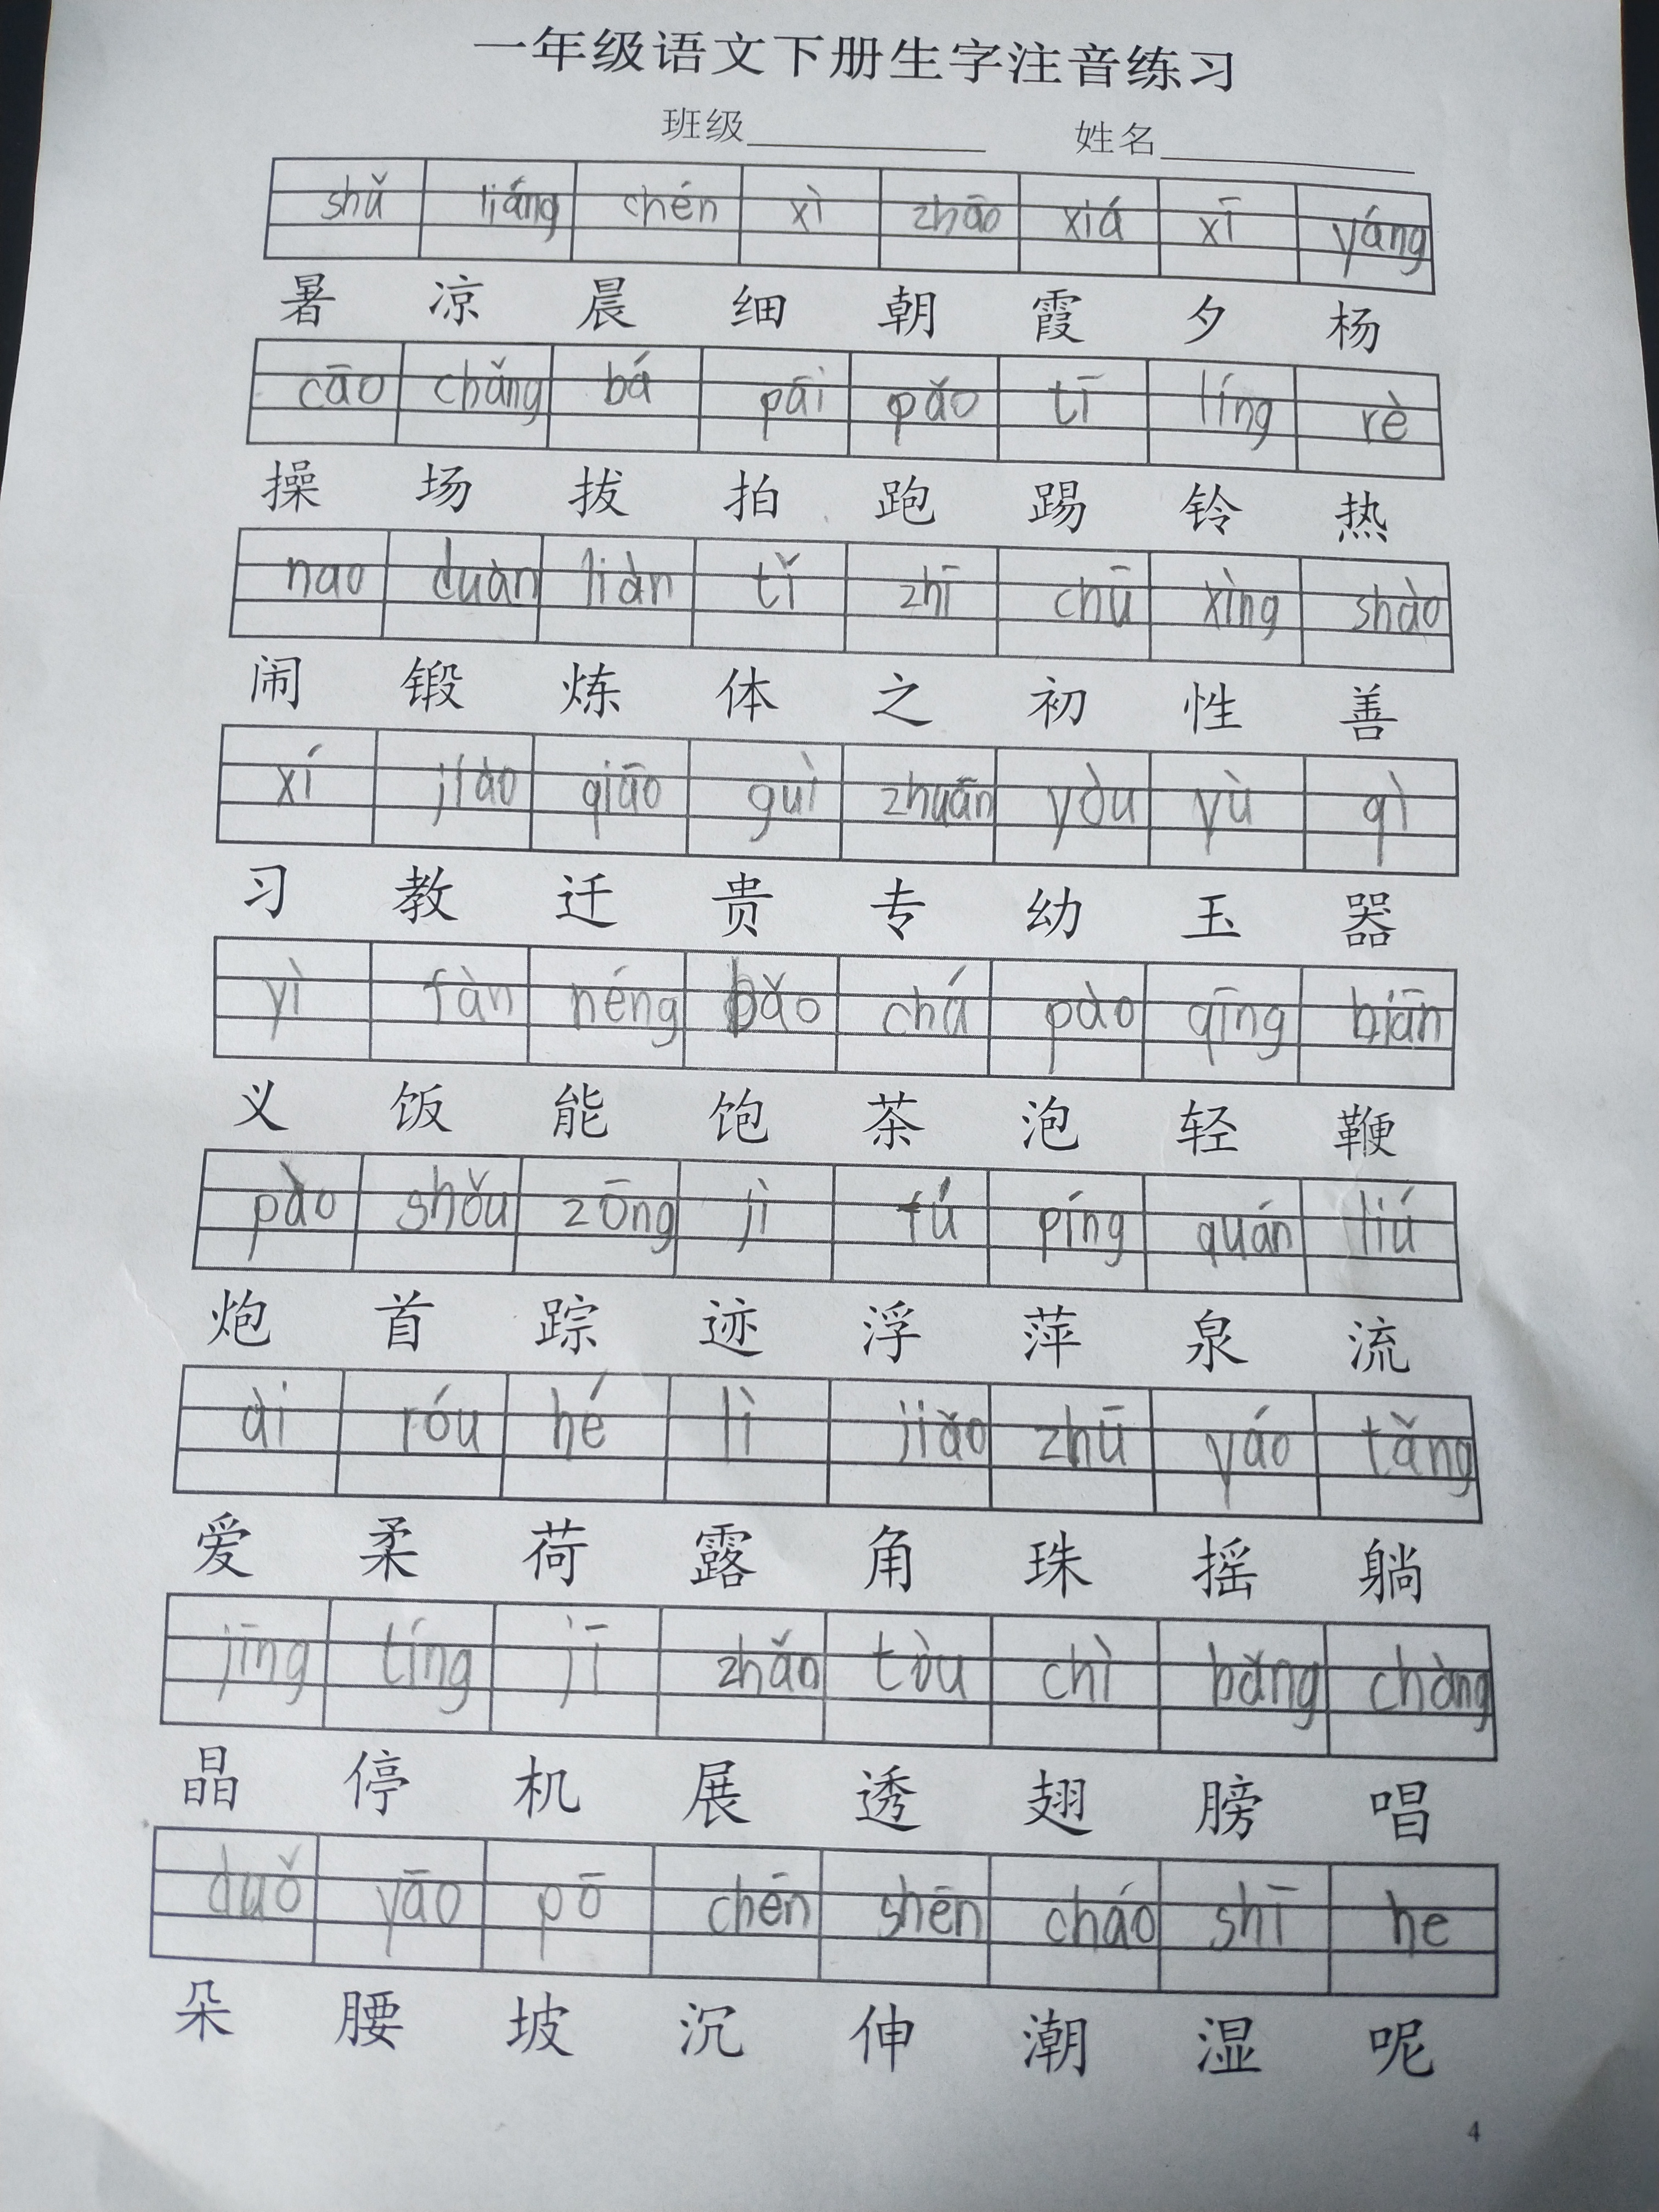 一年级语文下册生字注音练习
班级 姓名
shǔ liáng chén xì zhāo xiá xī yáng
暑 凉 晨 细 朝 霞 夕 杨
cāo chǎng bá pāi pǎo tī líng rè
操 场 拔 拍 跑 踢 铃 热
nao duàn liàn tǐ zhī chū xìng shào
闹 锻 炼 体 之 初 性 善
xí jiào qiāo guì zhuān yòu yù qì
习 教 迁 贵 专 幼 玉 器
yì fàn néng bǎo chá pào qīng biān
义 饭 能 饱 茶 泡 轻 鞭
pào shǒu zōng jì fú píng quán liú
炮 首 踪 迹 浮 萍 泉 流
ài róu hé lì jiǎo zhū yáo tǎng
爱 柔 荷 露 角 珠 摇 躺
jīng tíng jī zhǎo tòu chì bǎng chàng
晶 停 机 展 透 翅 膀 唱
duǒ yāo pō chēn shēn cháo shī he
朵 腰 坡 沉 伸 潮 湿 呢
4